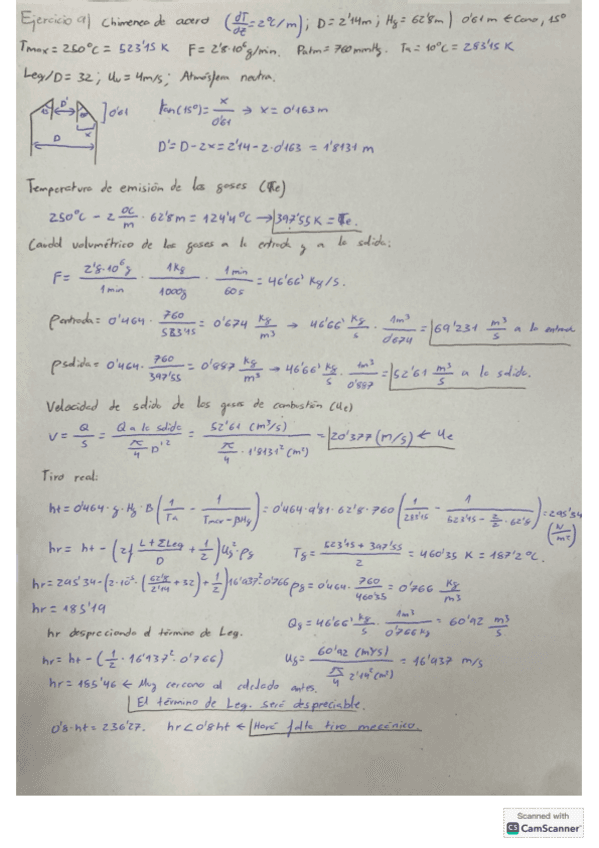 Ejercicio 9) Chimenea de acero (dT/dz = 2ºC/m); D = 2'14m; Hg = 62'8m | 0'61 m ∈ Cono, 15º
Tmax = 250ºC = 523'15 K F = 2'8·10⁶ g/min. Patm = 760 mmHg. Ta = 10ºC = 283'15 K
Leg/D = 32; Uw = 4m/s; Atmósfera neutra.
D' ]0'61 x D
tan(15º) = x/0'61 → x = 0'163 m
D' = D - 2x = 2'14 - 2·0'163 = 1'8131 m
Temperatura de emisión de los gases (Te)
250ºC - 2 ºC/m · 62'8m = 124'4ºC → 397'55 K = Te.
Caudal volumétrico de los gases a la entrada y a la salida:
F = 2'8·10⁶ g/1 min · 1Kg/1000g · 1 min/60s = 46'66 Kg/s.
ρentrada = 0'464 · 760/523'15 = 0'674 Kg/m³ → 46'66 Kg/s · 1m³/0'674 = 69'231 m³/s a la entrada
ρsalida = 0'464 · 760/397'55 = 0'887 Kg/m³ → 46'66 Kg/s · 1m³/0'887 = 52'61 m³/s a la salida.
Velocidad de salida de los gases de combustión (Ue)
V = Q/S = Q a la salida/(π/4 D'²) = 52'61 (m³/s)/(π/4 · 1'8131² (m²)) = 20'377 (m/s) ← Ue
Tiro real:
ht = 0'464 · g · Hg · B (1/Ta - 1/(Tmax - βHg)) = 0'464 · 9'81 · 62'8 · 760 (1/283'15 - 1/(523'15 - 2/2 · 62'8)) = 295'34 (N/m²)
hr = ht - (2f (L+ΣLeg)/D + 1/2) Ug² · ρg Tg = (523'15 + 397'55)/2 = 460'35 K = 187'2ºC.
hr = 295'34 - (2·10⁻³ · (62'8/2'14 + 32) + 1/2) 16'937² · 0'766 ρg = 0'464 · 760/460'35 = 0'766 Kg/m³
hr = 185'19
Qg = 46'66 Kg/s · 1m³/0'766 Kg = 60'92 m³/s
hr despreciando el término de Leg.
hr = ht - (1/2 · 16'937² · 0'766) Ug = 60'92 (m³/s)/(π/4 2'14² (m²)) = 16'937 m/s
hr = 185'46 ← Muy cercano al calculado antes.
El término de Leg. será despreciable.
0'8·ht = 236'27. hr < 0'8 ht ← Hará falta tiro mecánico.
Scanned with
CS CamScanner